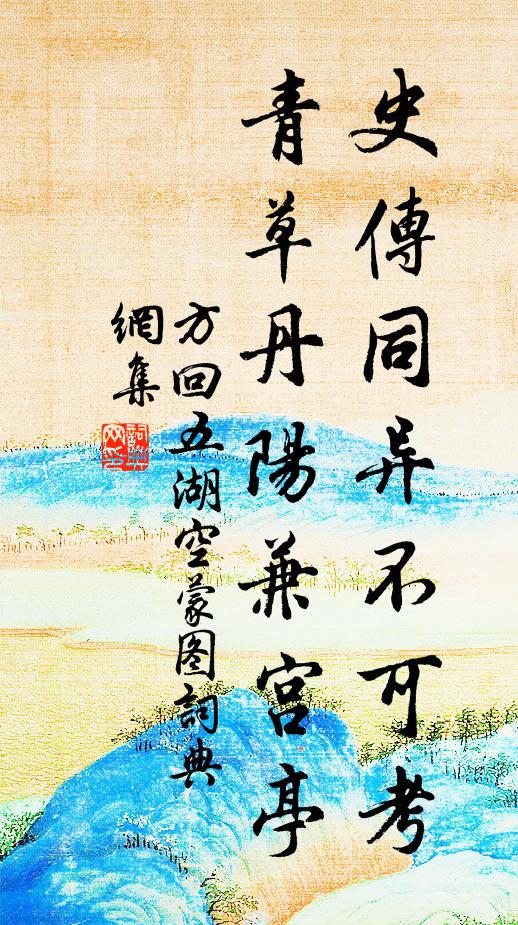 史傳同异不可考
青草丹陽兼宫亭
方回五湖空蒙图詞典
網集